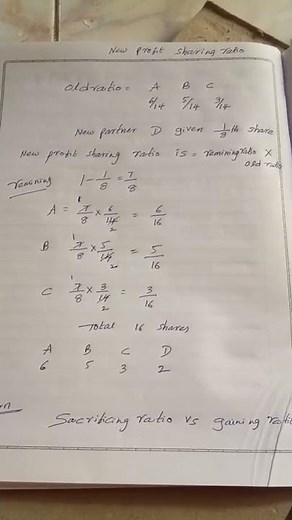 New profit sharing ratio
Old ratio = A B C
6/14 5/14 3/14
New partner D given 1/8th share
New profit sharing ratio is = remining ratio X
old ratio
remining 1 - 1/8 = 7/8
A = 7/8 × 6/14 = 6/16
1 2
B 7/8 × 5/14 = 5/16
1 2
C 7/8 × 3/14 = 3/16
1 2
Total 16 shares
A B C D
6 5 3 2
Sacrificing ratio vs gaining